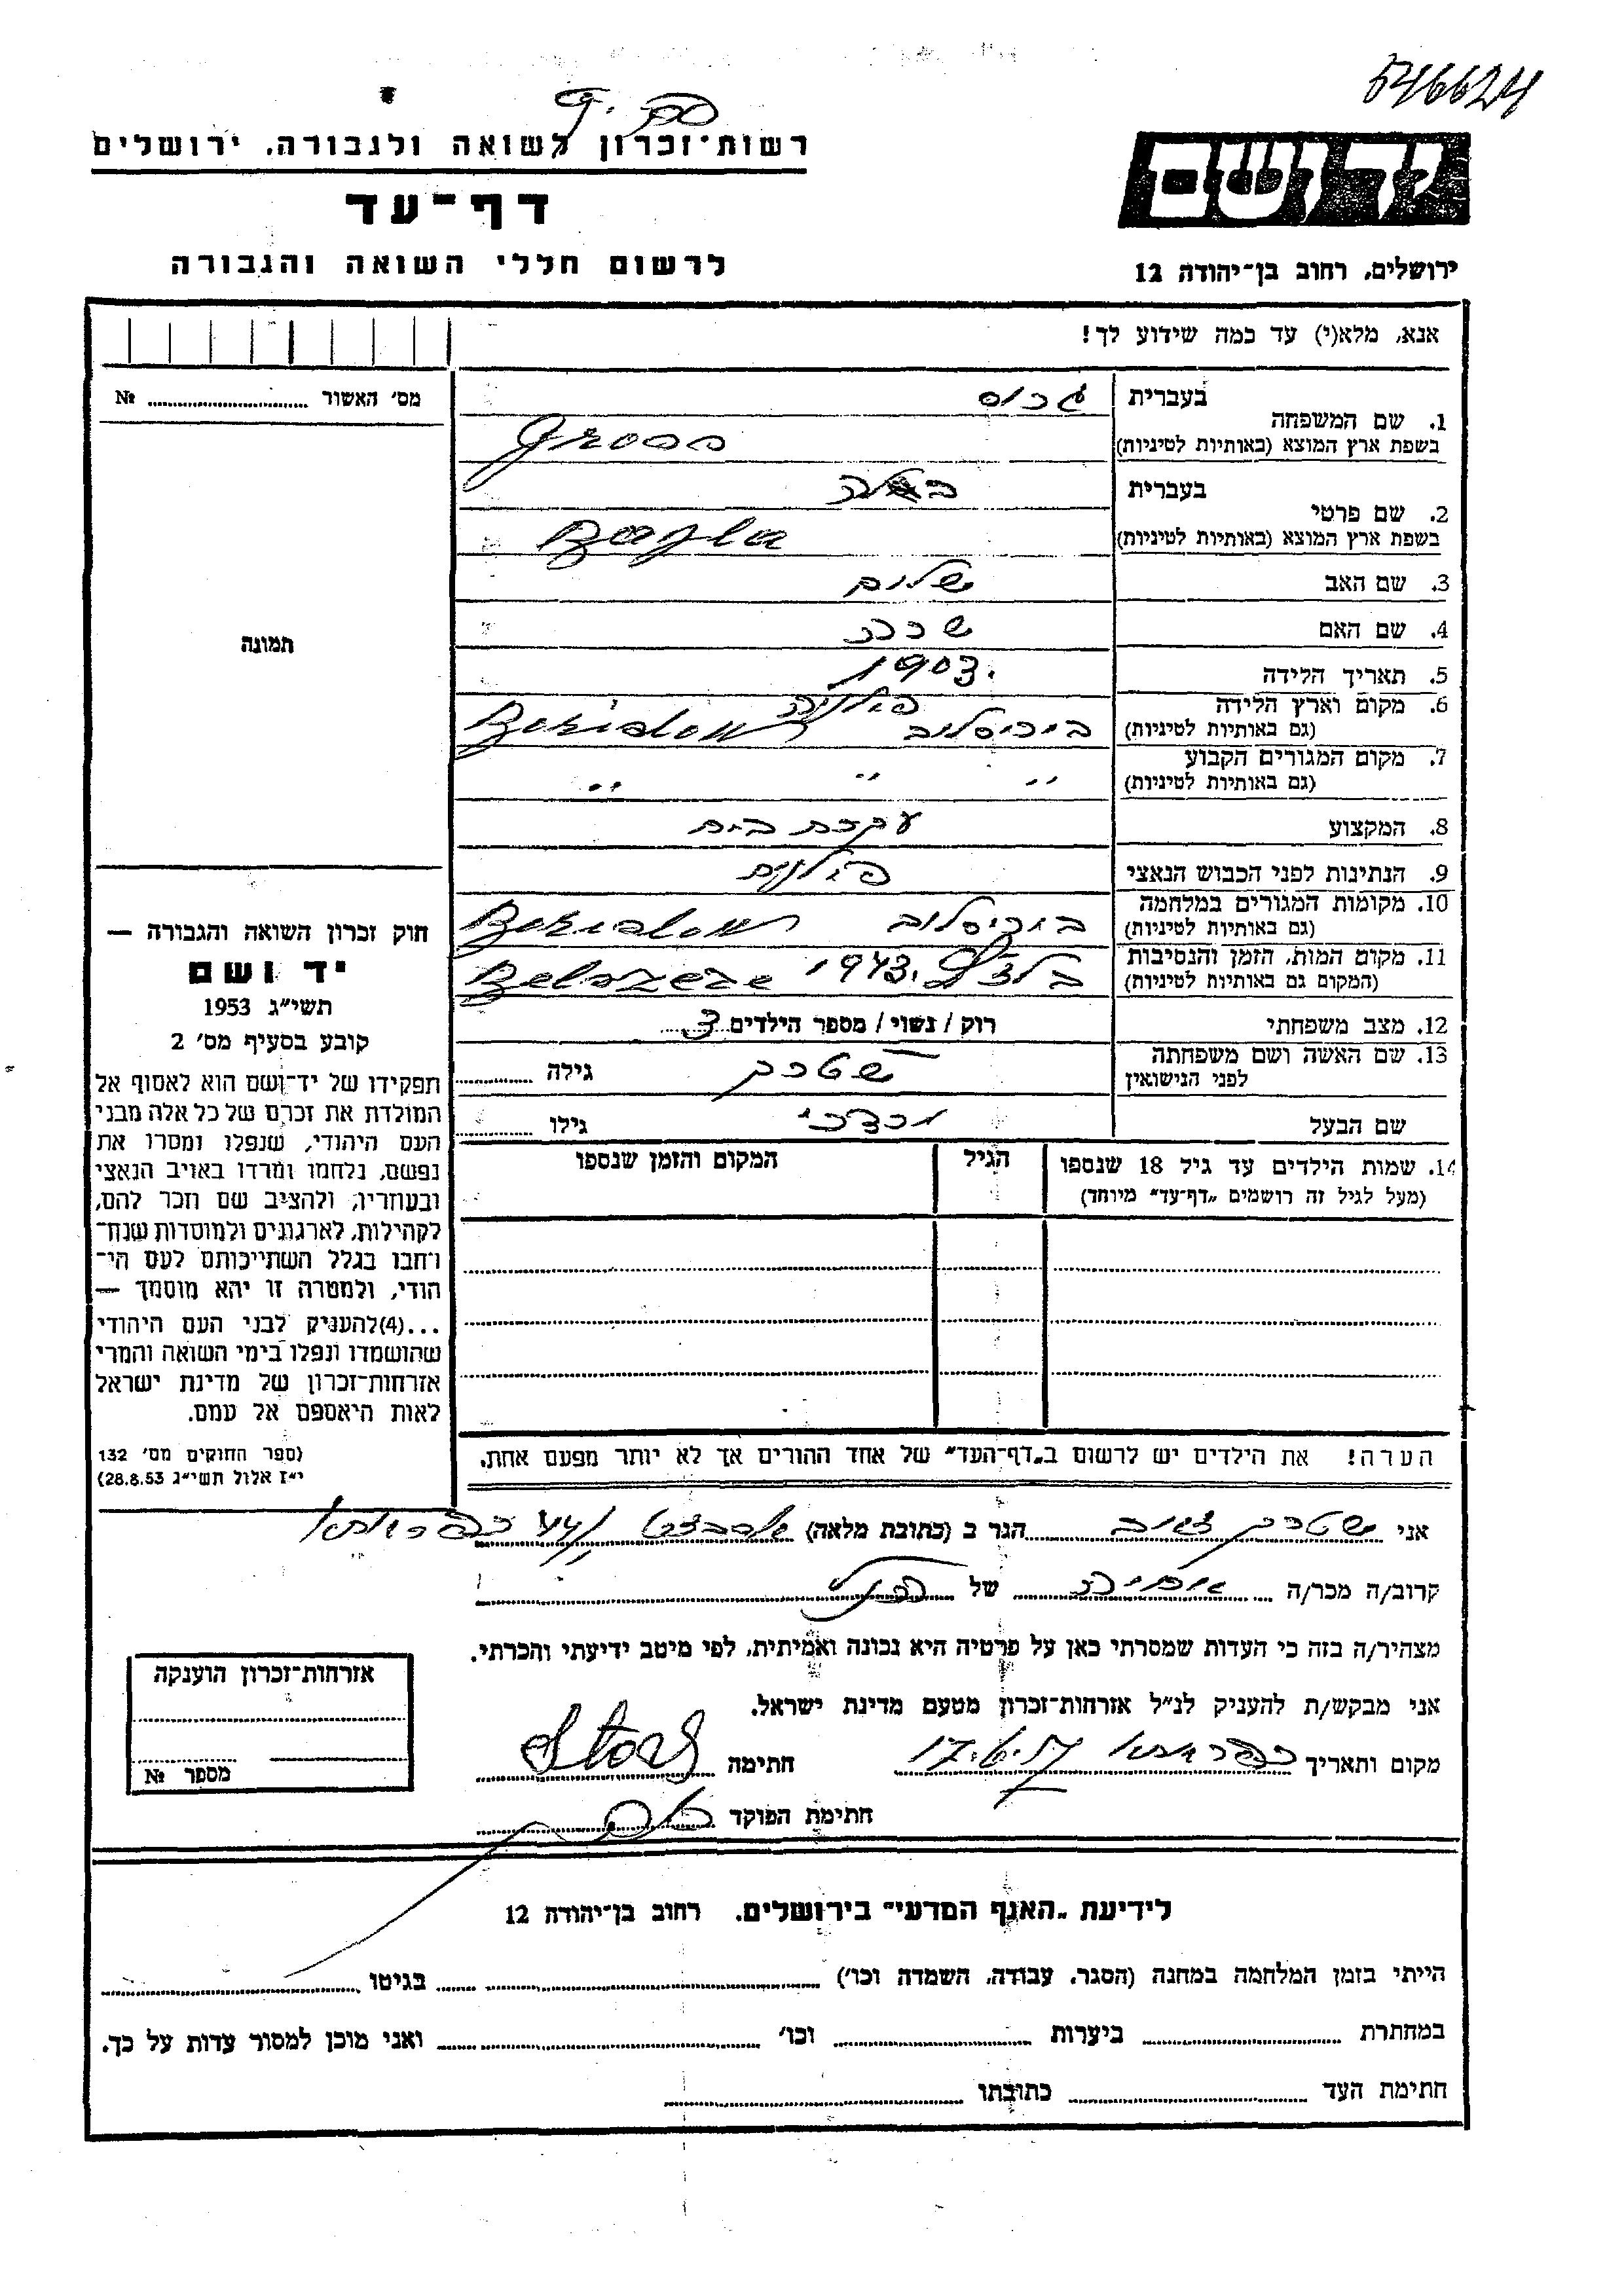 546624
יד ושם
ירושלים, רחוב בן־יהודה 12
רשות־זכרון לשואה ולגבורה, ירושלים
דף־עד
לרשום חללי השואה והגבורה
אנא, מלא(י) עד כמה שידוע לך!
מס' האשור № 
תמונה
1. שם המשפחה
בעברית גרוס
בשפת ארץ המוצא (באותיות לטיניות) Gross
2. שם פרטי
בעברית
בשפת ארץ המוצא (באותיות לטיניות) Bajla
3. שם האב שלום
4. שם האם שרה
5. תאריך הלידה 1903.
6. מקום וארץ הלידה פולניה
(גם באותיות לטיניות) בוריסלוב Borislow
7. מקום המגורים הקבוע
(גם באותיות לטיניות) " " "
8. המקצוע עקרת בית
9. הנתינות לפני הכבוש הנאצי פולנית
10. מקומות המגורים במלחמה
(גם באותיות לטיניות) בוריסלוב Borislow
11. מקום המות, הזמן והנסיבות
(המקום גם באותיות לטיניות) 1943.
12. מצב משפחתי רוק / נשוי / מספר הילדים 3
13. שם האשה ושם משפחתה
לפני הנישואין שטרן גילה
שם הבעל מרדכי גילו
14. שמות הילדים עד גיל 18 שנספו
(מעל לגיל זה רושמים „דף־עד" מיוחד)
הגיל
המקום והזמן שנספו
הערה! את הילדים יש לרשום ב„דף־העד" של אחד ההורים אך לא יותר מפעם אחת.
חוק זכרון השואה והגבורה —
יד ושם
תשי"ג 1953
קובע בסעיף מס' 2
תפקידו של יד־ושם הוא לאסוף אל
המולדת את זכרם של כל אלה מבני
העם היהודי, שנפלו ומסרו את
נפשם, נלחמו ומרדו באויב הנאצי
ובעוזריו, ולהציב שם וזכר להם,
לקהילות, לארגונים ולמוסדות שנח־
רחבו בגלל השתייכותם לעם הי־
הודי, ולמטרה זו יהא מוסמך —
...(4)להעניק לבני העם היהודי
שהושמדו ונפלו בימי השואה והמרי
אזרחות־זכרון של מדינת ישראל
לאות היאספם אל עמם.
(ספר החוקים מס' 132
י"ז אלול תשי"ג 28.8.53)
אני שטרן הגר ב (כתובת מלאה)
קרוב/ה מכר/ה של
מצהיר/ה בזה כי העדות שמסרתי כאן על פרטיה היא נכונה ואמיתית, לפי מיטב ידיעתי והכרתי.
אני מבקש/ת להעניק לנ"ל אזרחות־זכרון מטעם מדינת ישראל.
מקום ותאריך חתימה
חתימת הפוקד
אזרחות־זכרון הוענקה
מספר №
לידיעת „האגף המדעי" בירושלים, רחוב בן־יהודה 12
הייתי בזמן המלחמה במחנה (הסגר, עבודה, השמדה וכו') בגיטו
במחתרת ביערות וכו' ואני מוכן למסור עדות על כך.
חתימת העד כתובתו